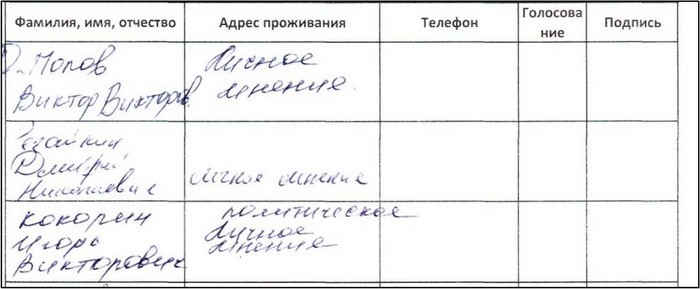 Фамилия, имя, отчество Адрес проживания Телефон Голосова Подпись
ние
Попов Личное
Виктор Викторов. мнение.
Дмитрий
Николаевич личное мнение
Кокорин политическое
Игорь Личное
Викторович мнение